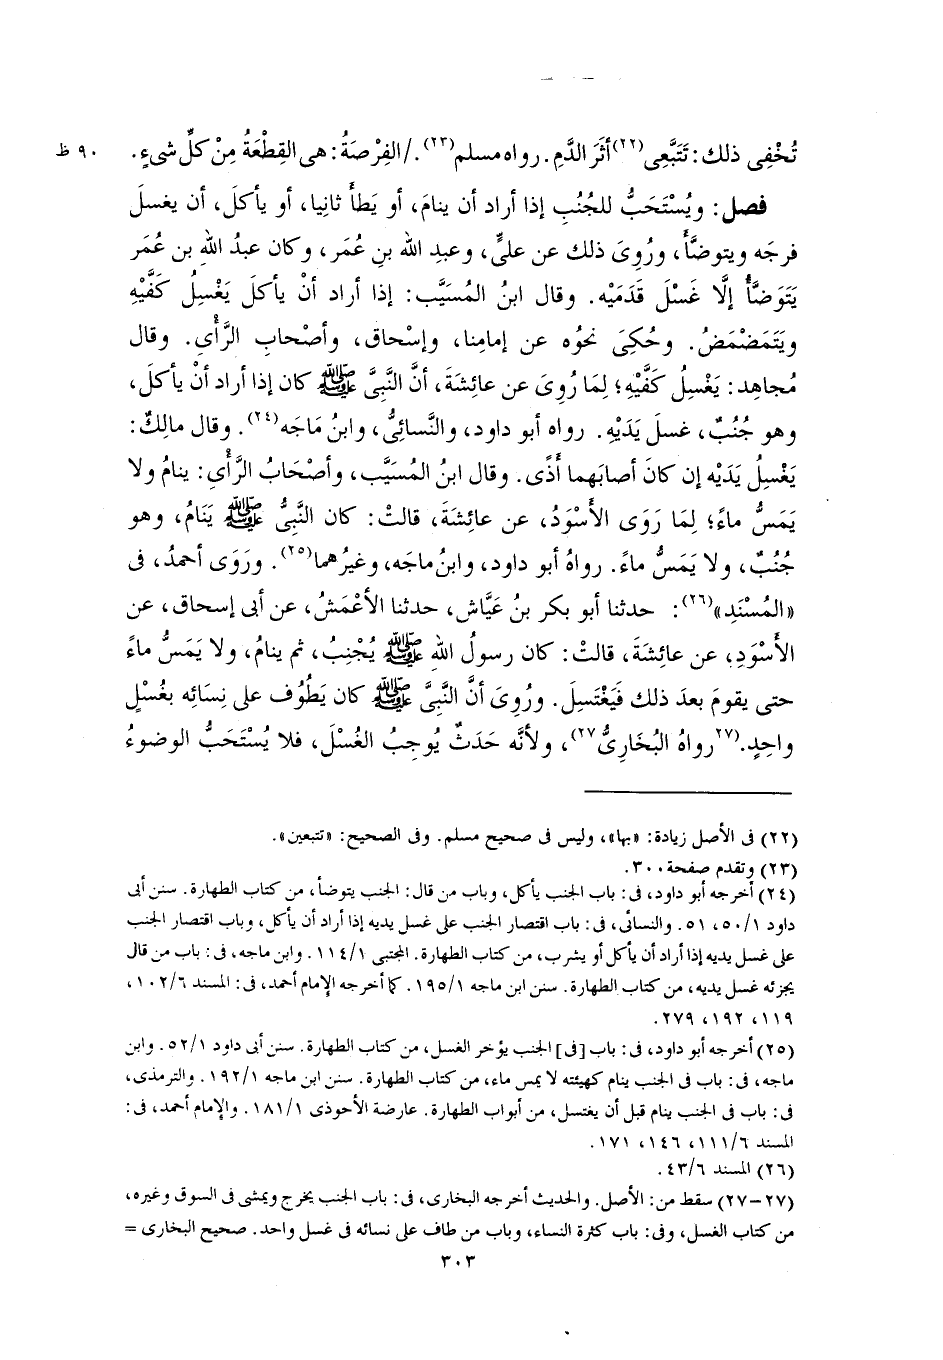 تُخْفِى ذلك: تَتَبَّعِى(٢٢) أثَرَ الدَّمِ. رواه مسلم(٢٣). / الفِرْصَةُ: هى القِطْعَةُ مِنْ كلِّ شىءٍ. ٩٠ ظ
فصل: ويُسْتَحَبُّ للجُنُبِ إذا أراد أن ينامَ، أو يَطأَ ثانيا، أو يأكلَ، أن يغسلَ
فرجَه ويتوضَّأَ، ورُوِىَ ذلك عن علىٍّ، وعبدِ الله بنِ عُمَر، وكان عبدُ الله بن عُمَر
يَتَوَضَّأُ إلَّا غَسْلَ قَدَمَيْه. وقال ابنُ المُسَيَّب: إذا أراد أنْ يأكلَ يَغْسِلُ كَفَّيْهِ
ويَتَمَضْمَضُ. وحُكِىَ نحوُه عن إمامِنا، وإسْحاق، وأصْحابِ الرَّأْىِ. وقال
مُجاهِد: يَغْسِلُ كَفَّيْهِ؛ لِمَا رُوِىَ عن عائِشَةَ، أنَّ النَّبِىَّ ﷺ كان إذا أراد أنْ يأكلَ،
وهو جُنُبٌ، غسلَ يَدَيْهِ. رواه أبو داود، والنَّسائِىُّ، وابنُ مَاجَه(٢٤). وقال مالِكٌ:
يَغْسِلُ يَدَيْه إن كانَ أصابَهما أذًى. وقال ابنُ المُسَيَّب، وأصْحَابُ الرَّأْىِ: ينامُ ولا
يَمَسُّ ماءً؛ لِمَا رَوَى الأَسْوَدُ، عن عائِشَةَ، قالتْ: كان النَّبِىُّ ﷺ يَنَامُ، وهو
جُنُبٌ، ولا يَمَسُّ ماءً. رواهُ أبو داود، وابنُ ماجَه، وغيرُهما(٢٥). ورَوَى أحمدُ، فى
«المُسْنَدِ»(٢٦): حدثنا أبو بكر بنُ عَيَّاش، حدثنا الأعْمَشُ، عن أبى إسحاق، عن
الأَسْوَدِ، عن عائِشَةَ، قالتْ: كان رسولُ الله ﷺ يُجْنِبُ، ثم ينامُ، ولا يَمَسُّ ماءً
حتى يقومَ بعدَ ذلك فَيَغْتَسِلَ. ورُوِىَ أنَّ النَّبِىَّ ﷺ كان يَطُوُف على نِسَائِه بغُسْلٍ
واحِدٍ. (٢٧رواهُ البُخَارِىُّ٢٧)، ولأنَّه حَدَثٌ يُوجِبُ الغُسْلَ، فلا يُسْتَحَبُّ الوضوءُ
(٢٢) فى الأصل زيادة: «بها»، وليس فى صحيح مسلم. وفى الصحيح: «تتبعين».
(٢٣) وتقدم صفحة ٣٠٠.
(٢٤) أخرجه أبو داود، فى: باب الجنب يأكل، وباب من قال: الجنب يتوضأ، من كتاب الطهارة. سنن أبى
داود ١/ ٥٠، ٥١. والنسائى، فى: باب اقتصار الجنب على غسل يديه إذا أراد أن يأكل، وباب اقتصار الجنب
على غسل يديه إذا أراد أن يأكل أو يشرب، من كتاب الطهارة. المجتبى ١/ ١١٤. وابن ماجه، فى: باب من قال
يجزئه غسل يديه، من كتاب الطهارة. سنن ابن ماجه ١/ ١٩٥. كما أخرجه الإمام أحمد، فى: المسند ٦/ ١٠٢،
١١٩، ١٩٢، ٢٧٩.
(٢٥) أخرجه أبو داود، فى: باب [فى] الجنب يؤخر الغسل، من كتاب الطهارة. سنن أبى داود ١/ ٥٢. وابن
ماجه، فى: باب فى الجنب ينام كهيئته لا يمس ماء، من كتاب الطهارة. سنن ابن ماجه ١/ ١٩٢. والترمذى،
فى: باب فى الجنب ينام قبل أن يغتسل، من أبواب الطهارة. عارضة الأحوذى ١/ ١٨١. والإمام أحمد، فى:
المسند ٦/ ١١١، ١٤٦، ١٧١.
(٢٦) المسند ٦/ ٤٣.
(٢٧-٢٧) سقط من: الأصل. والحديث أخرجه البخارى، فى: باب الجنب يخرج ويمشى فى السوق وغيره،
من كتاب الغسل، وفى: باب كثرة النساء، وباب من طاف على نسائه فى غسل واحد. صحيح البخارى =
٣٠٣